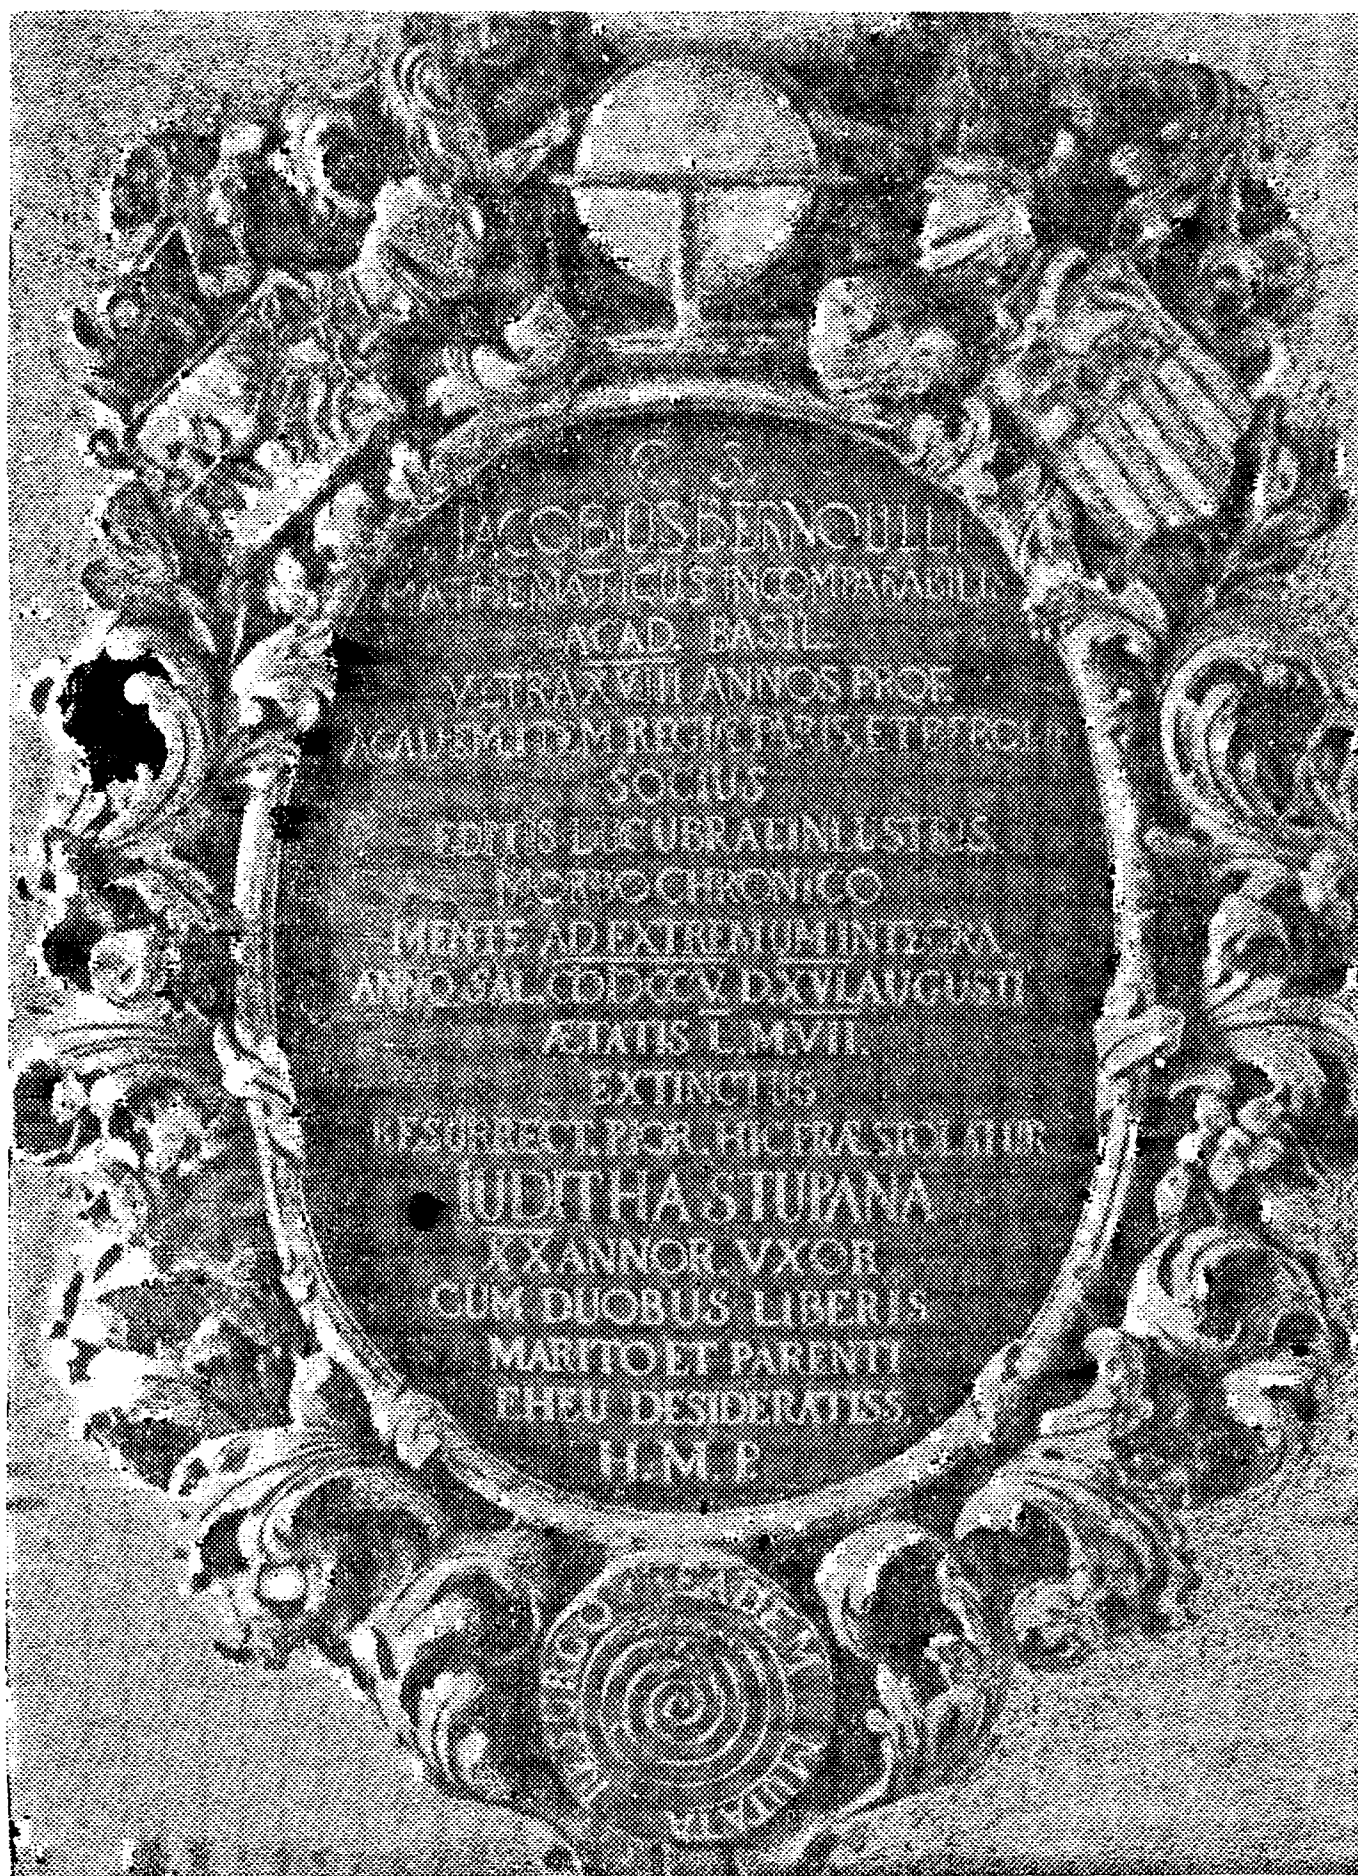 C. S.
IACOBUS BERNOULLI
MATHEMATICUS INCOMPARABILIS
ACAD. BASIL.
VLTRA XVIII ANNOS PROF.
ACADEM. ITEM REGIÆ PARIS. ET BEROLIN.
SOCIUS
EDITIS LUCUBRAT. INLUSTRIS.
MORBO CHRONICO
MENTE AD EXTREMUM INTEGRA
ANNO SAL. CIƆIƆCCV. D. XVI. AUGUSTI
ÆTATIS L. M. VII.
EXTINCTUS
RESURRECT. PIOR. HIC PRÆSTOLATUR
IUDITHA STUPANA
XX ANNOR. VXOR
CUM DUOBUS LIBERIS
MARITO ET PARENTI
EHEU DESIDERATISS.
H. M. P.
EADEM MUTATA RESURGO